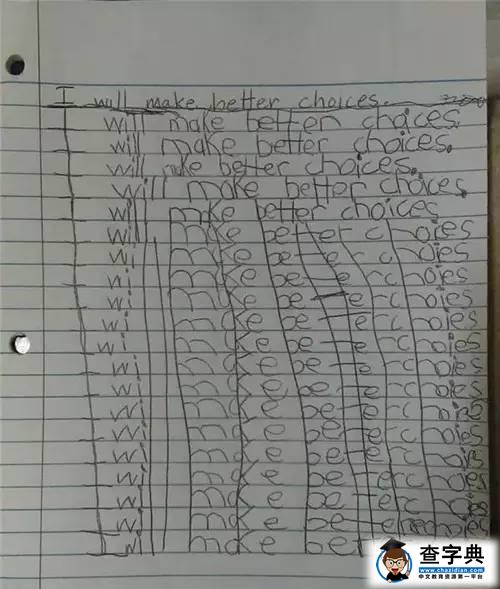 I will make better choices.
I will make better choices.
I will make better choices.
I will make better choices.
I will make better choices.
I will make better choices
I will make better choies
I will make better choies
I will make better choies
I will make better choies
I will make better choies
I will make better choies
I will make better choies
I will make better choies
I will make better choies
I will make better choies
I will make better
I will make better choies
I will make better
I will make better choies
I will make
查字典
www.chazidian.com
中文教育资源第一平台